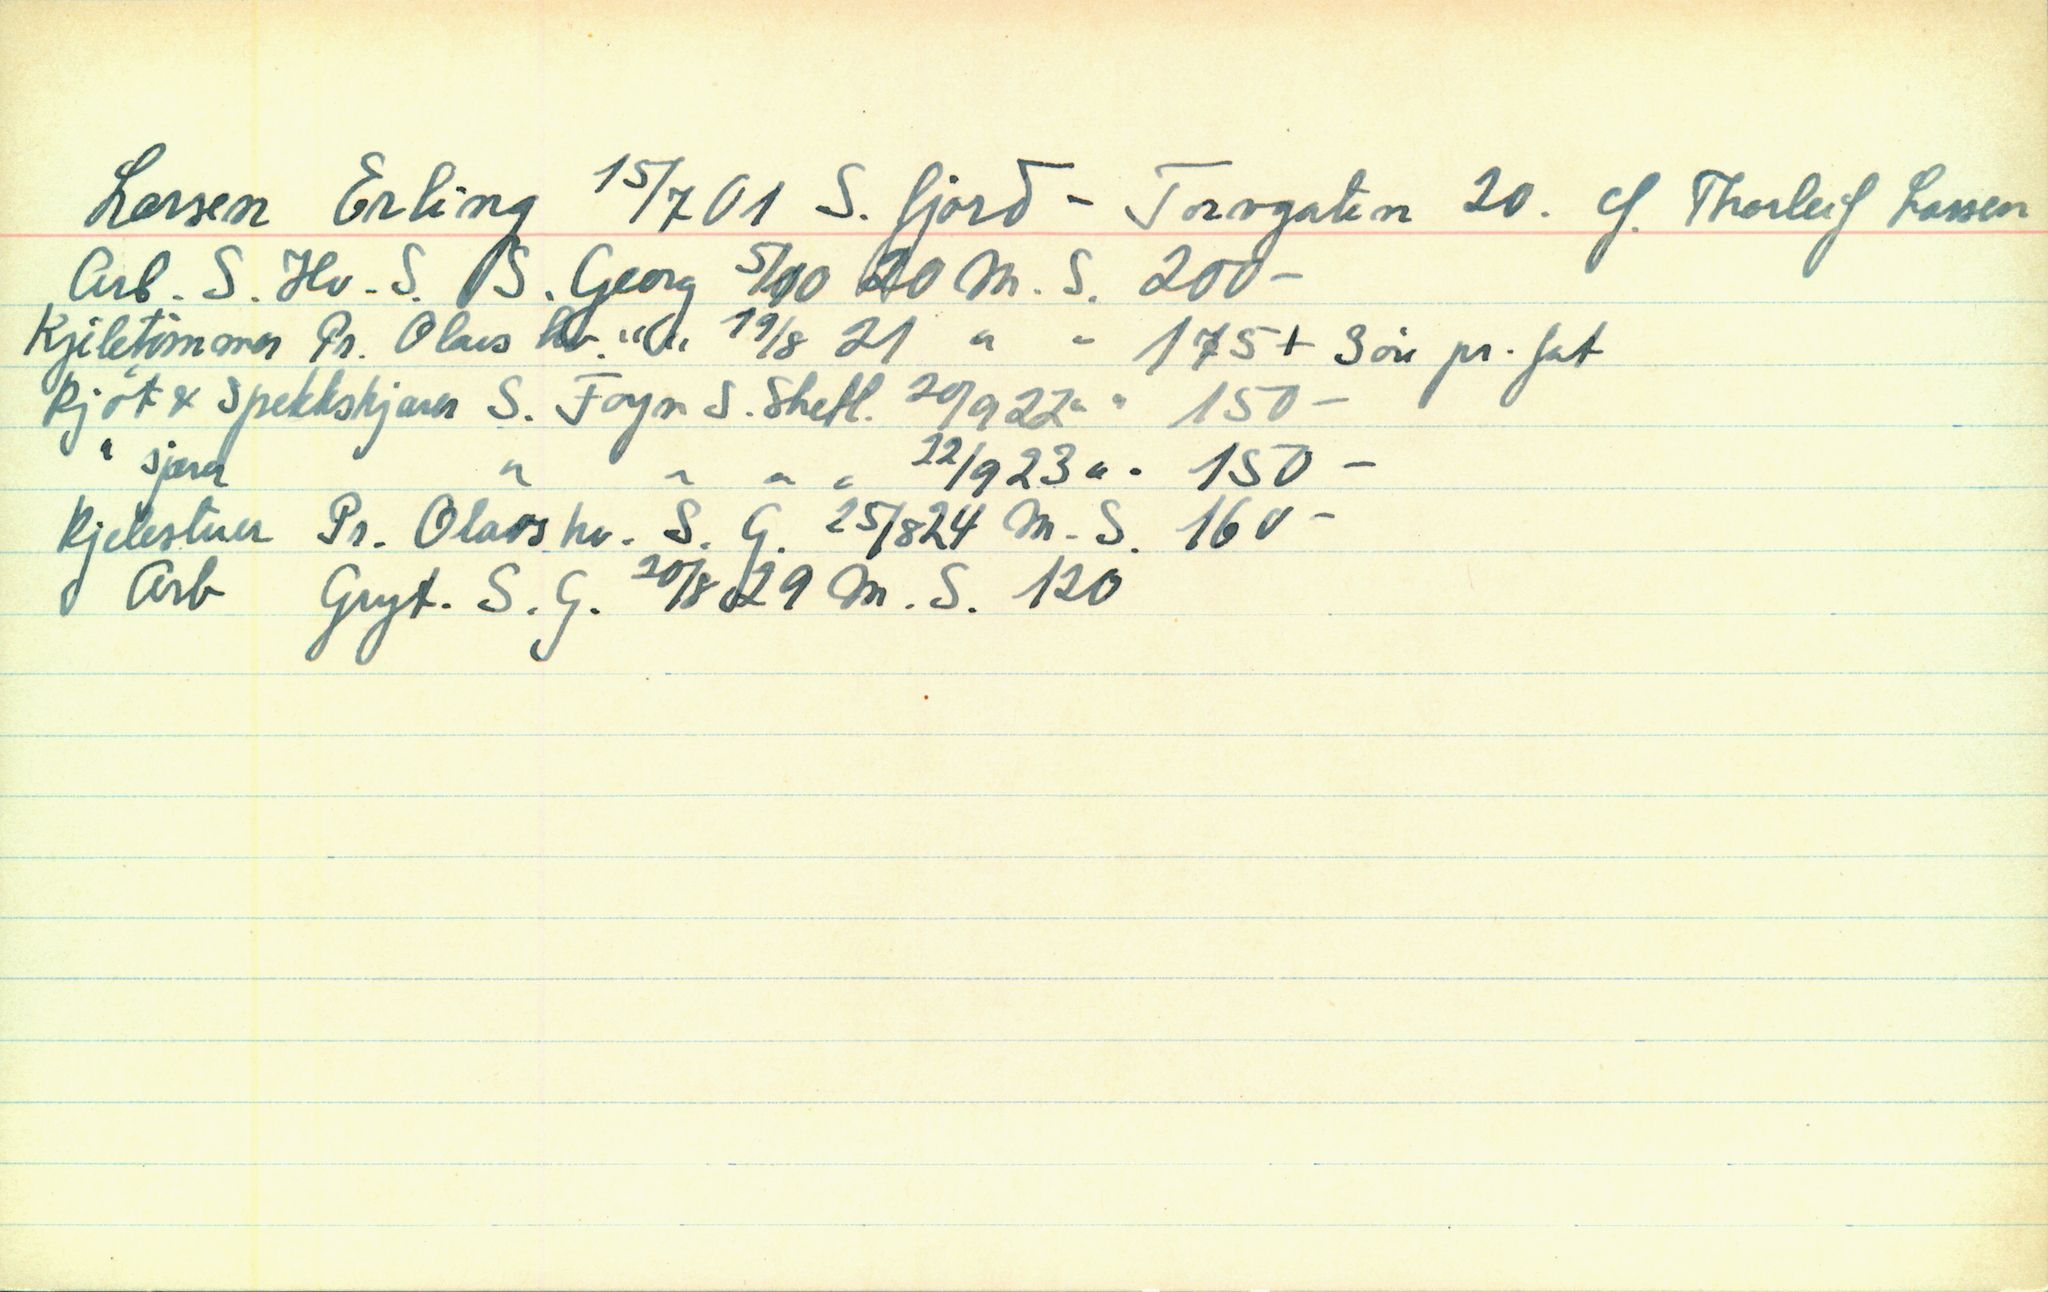 Larsen Erling 15/7 01 S. fjord - Torvgaten 20. f. Thorleif Larsen
Arb. S. Hv. S. S. Georg 5/10 20 M. S. 200 -
Kjeletömmer Pr. Olavs hv. " " 19/8 21 " " 175 + 3 öre pr. fat
Kjöt & Spekkskjærer S. Foyn S. Shetl. 20/9 22 " " 150 -
" " " " " 22/9 23 " " 150 -
Kjelestuer Pr. Olavs hv. S. G. 25/8 24 M. S. 160 -
Arb Gryt. S. G. 20/8 29 M. S. 120